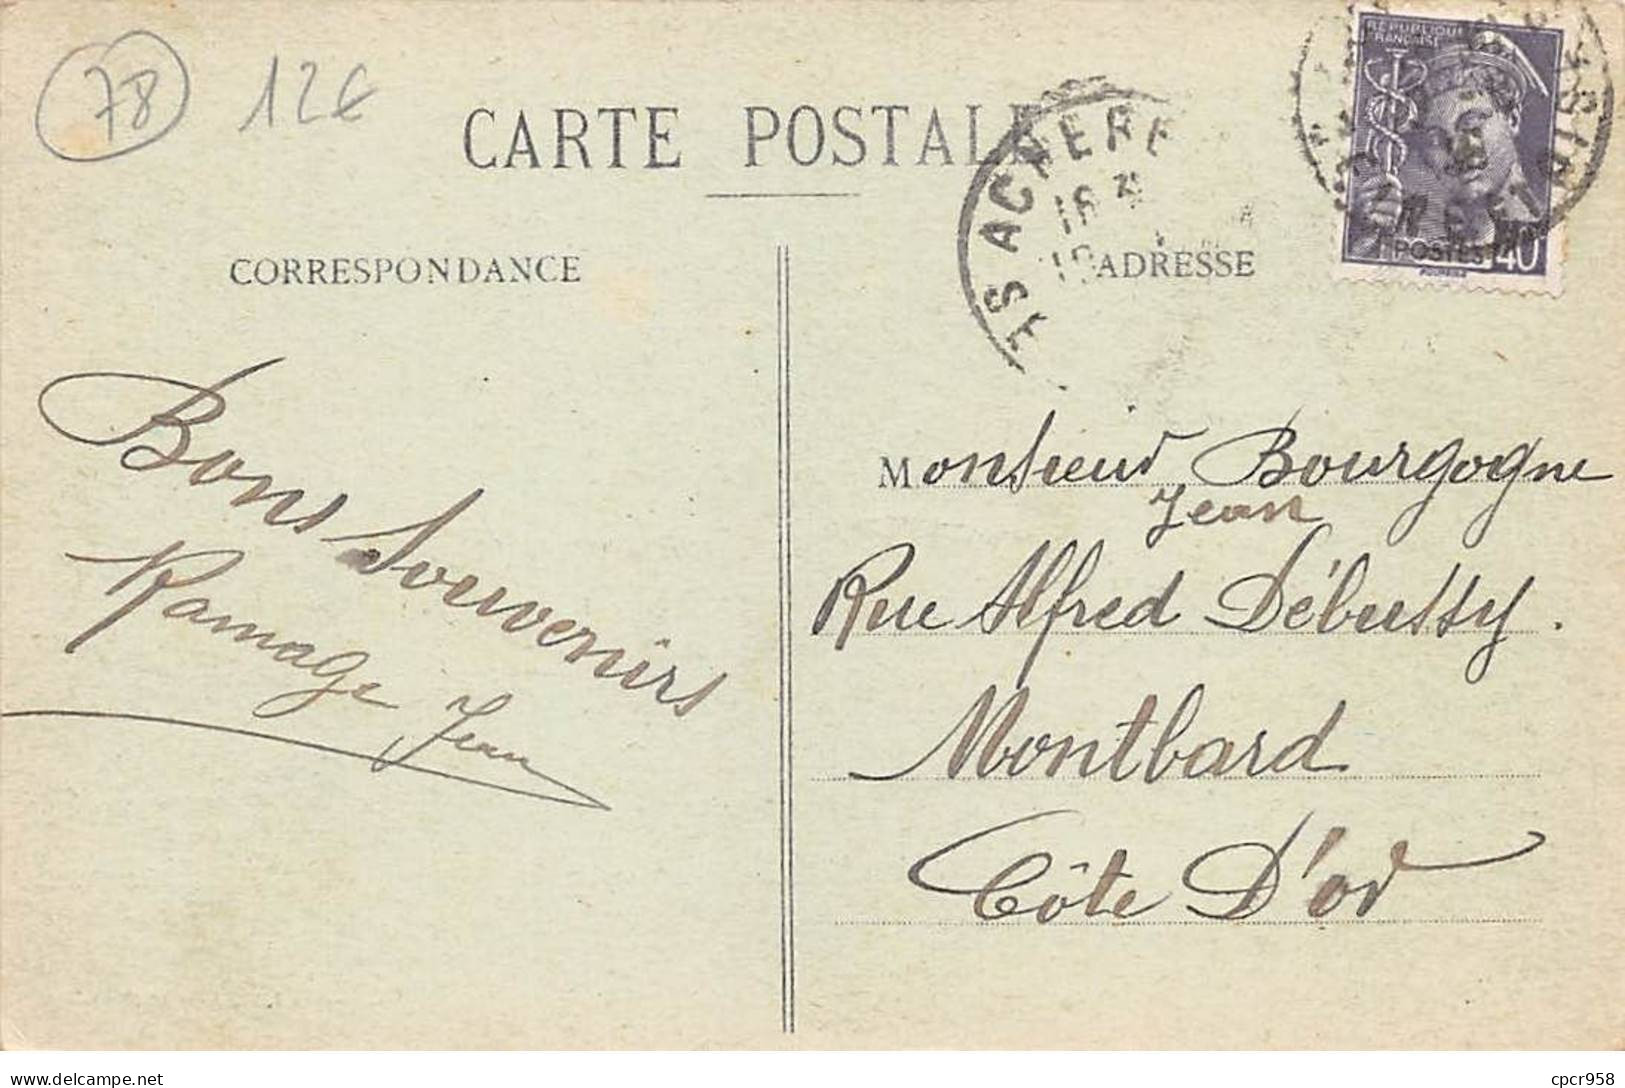 78 12€
CARTE POSTALE
RÉPUBLIQUE
FRANÇAISE
POSTES 40
ES ACHERE
16
CORRESPONDANCE
ADRESSE
Bons Souvenirs
Ramage Jean
Monsieur Bourgogne
Jean
Rue Alfred Débussy.
Montbard
Côte D'or
delcampe.net
cpcr958